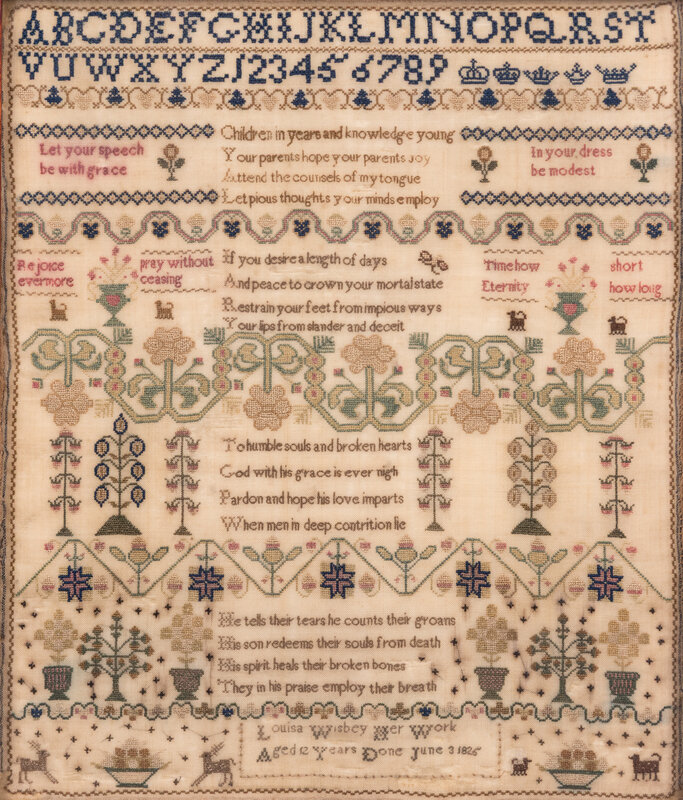 ABCDEFGHIJKLMNOPQRST
VUWXYZ123456789
Children in years and knowledge young
Your parents hope your parents joy
Attend the counsels of my tongue
Let pious thoughts your minds employ
Let your speech
be with grace
In your dress
be modest
If you desire a length of days
And peace to crown your mortal state
Restrain your feet from impious ways
Your lips from slander and deceit
Rejoice
evermore
pray without
ceasing
Time how short
Eternity how long
To humble souls and broken hearts
God with his grace is ever nigh
Pardon and hope his love imparts
When men in deep contrition lie
He tells their tears he counts their groans
His son redeems their souls from death
His spirit heals their broken bones
They in his praise employ their breath
Louisa Wisbey Her Work
Aged 12 Years Done June 3 1825